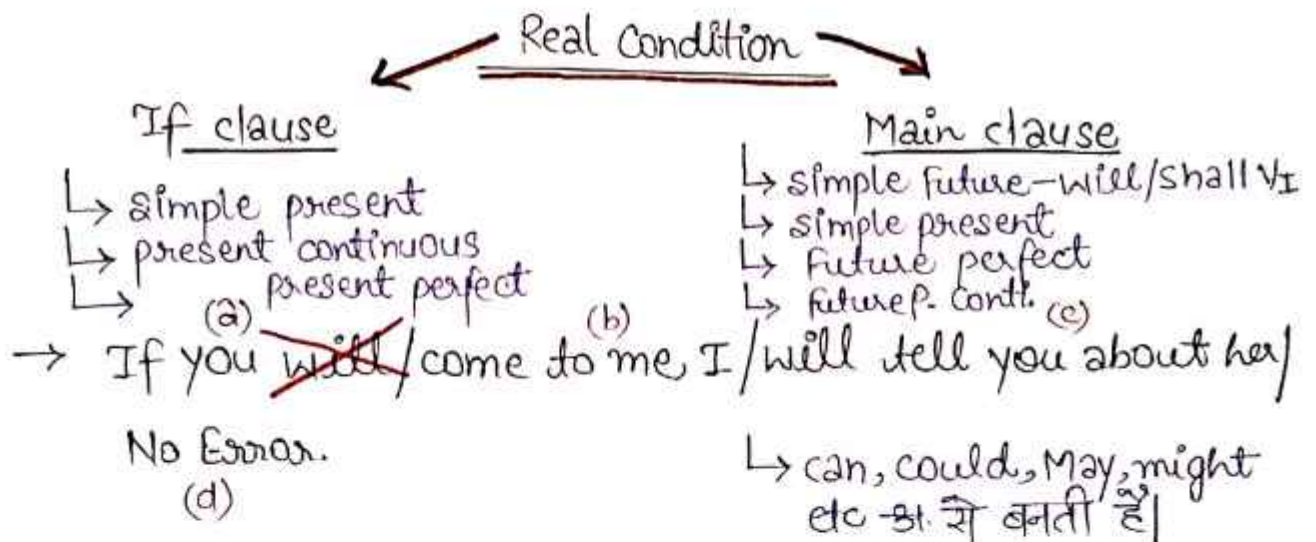 Real Condition
If clause
Main clause
↳ simple present
↳ present continuous
↳ present perfect
↳ simple future-will/shall V1
↳ simple present
↳ Future perfect
↳ future P. Conti.
(a) (b) (c)
→ If you will/come to me, I/will tell you about her/
No Error.
(d)
↳ can, could, May, might
etc से बनती है|